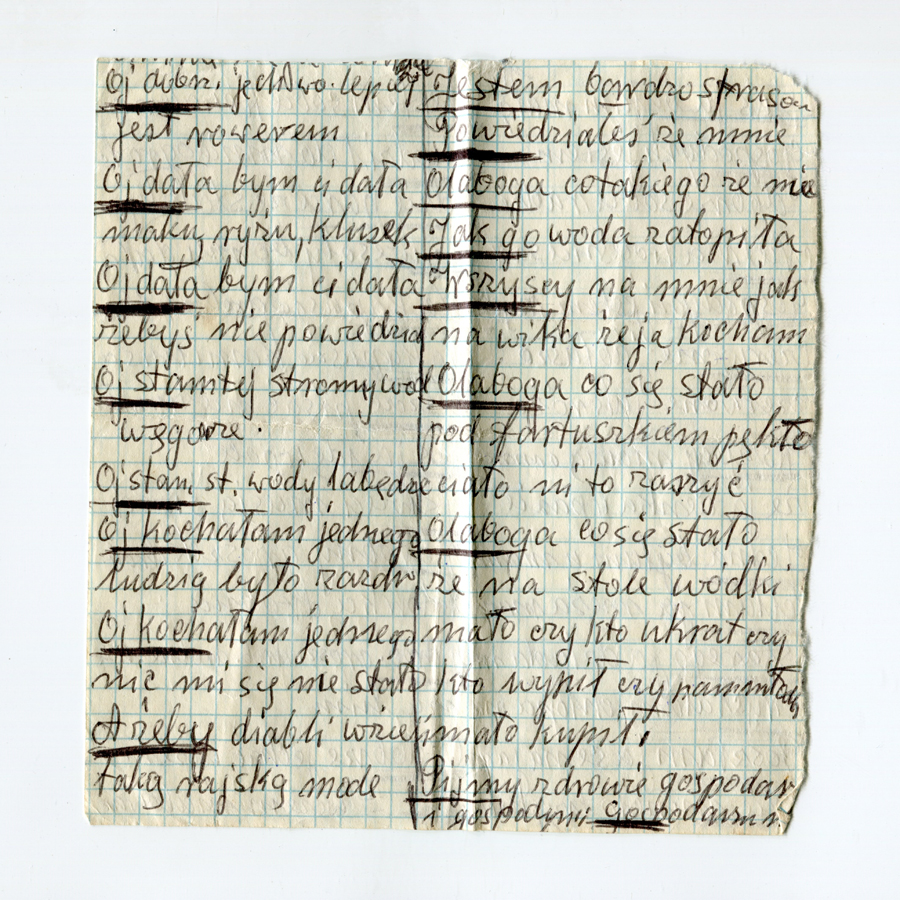 Oj dobrz. jedstwo. lepiej
jest rowerem
Oj dała bym ci dała
maku, ryżu, klusek
Oj dała bym ci dała
żebyś nie powiedzia
Oj stamtej stromy wod
węgorze.
Oj stam. st. wody łabędzie
Oj kochałam jednego
ludzią było zazdro
Oj kochałam jednego
nic mi się nie stało
A żeby diabli wzieli
taką rajską mode
Jestem bardzo
Powiedziałeś że mnie
Olaboga cotakiego że nie
Jak go woda zatopiła
Wszyscy na mnie jak
na wilka że ja kocham
Olaboga co się stało
pod fartuszkiem pękło
ciało ni to zaszyć
Olaboga co się stało
że na stole wódki
mało czy kto ukrat czy
kto wypił czy pan młody
mało kupił.
Pijmy zdrowie gospodar
i gospodyni gospodarzu